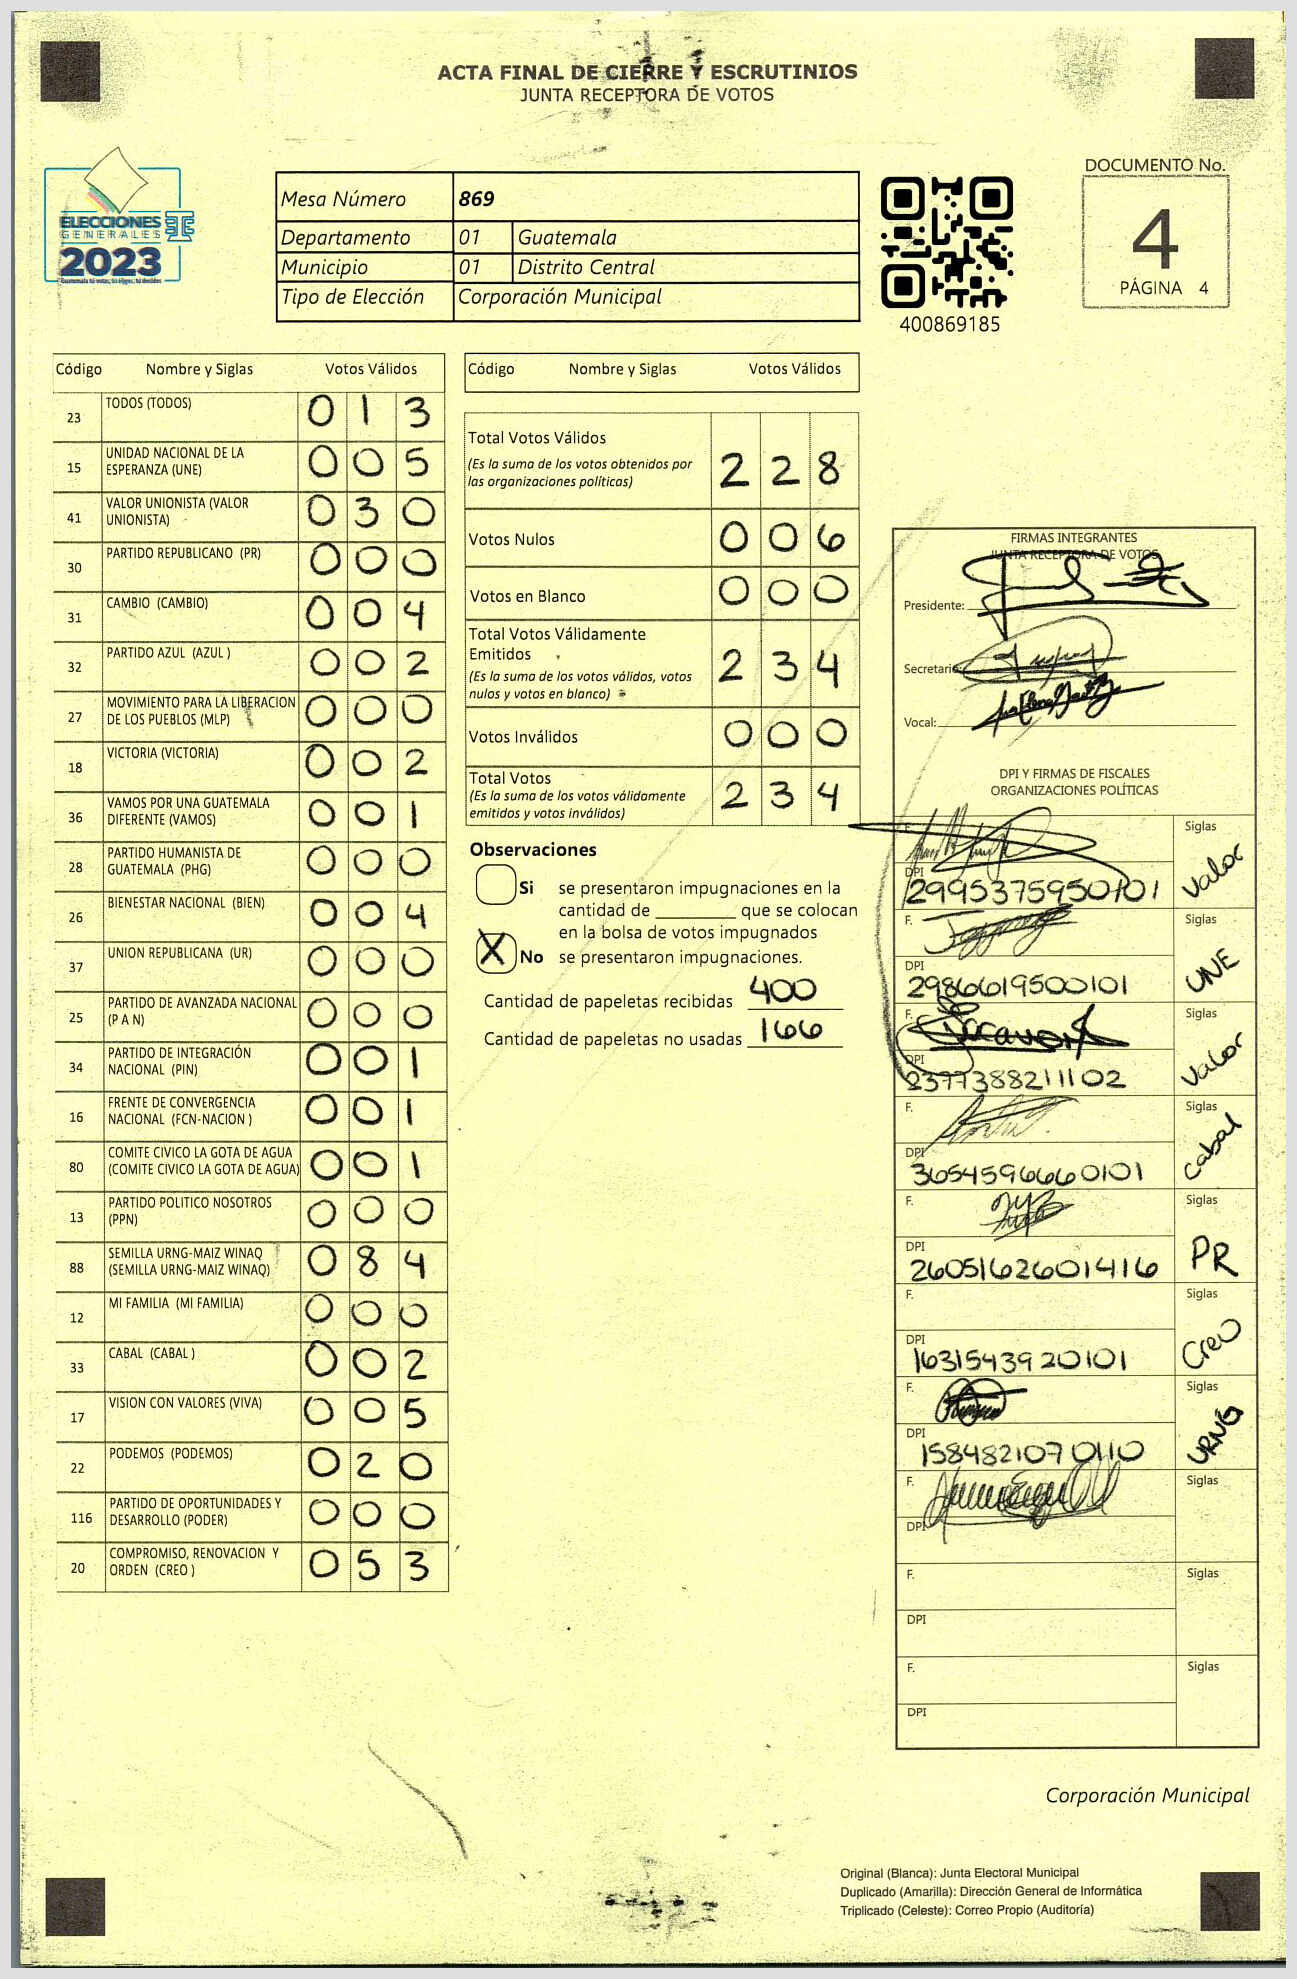 ACTA FINAL DE CIERRE Y ESCRUTINIOS
JUNTA RECEPTORA DE VOTOS
ELECCIONES
GENERALES
2023
Guatemala tú votas, tú eliges, tú decides
TSE
Mesa Número 869
Departamento 01 Guatemala
Municipio 01 Distrito Central
Tipo de Elección Corporación Municipal
400869185
DOCUMENTO No.
4
PÁGINA 4
Código Nombre y Siglas Votos Válidos
23 TODOS (TODOS) 0 1 3
15 UNIDAD NACIONAL DE LA ESPERANZA (UNE) 0 0 5
41 VALOR UNIONISTA (VALOR UNIONISTA) 0 3 0
30 PARTIDO REPUBLICANO (PR) 0 0 0
31 CAMBIO (CAMBIO) 0 0 4
32 PARTIDO AZUL (AZUL ) 0 0 2
27 MOVIMIENTO PARA LA LIBERACION DE LOS PUEBLOS (MLP) 0 0 0
18 VICTORIA (VICTORIA) 0 0 2
36 VAMOS POR UNA GUATEMALA DIFERENTE (VAMOS) 0 0 1
28 PARTIDO HUMANISTA DE GUATEMALA (PHG) 0 0 0
26 BIENESTAR NACIONAL (BIEN) 0 0 4
37 UNION REPUBLICANA (UR) 0 0 0
25 PARTIDO DE AVANZADA NACIONAL (P A N) 0 0 0
34 PARTIDO DE INTEGRACIÓN NACIONAL (PIN) 0 0 1
16 FRENTE DE CONVERGENCIA NACIONAL (FCN-NACION ) 0 0 1
80 COMITE CIVICO LA GOTA DE AGUA (COMITE CIVICO LA GOTA DE AGUA) 0 0 1
13 PARTIDO POLITICO NOSOTROS (PPN) 0 0 0
88 SEMILLA URNG-MAIZ WINAQ (SEMILLA URNG-MAIZ WINAQ) 0 8 4
12 MI FAMILIA (MI FAMILIA) 0 0 0
33 CABAL (CABAL ) 0 0 2
17 VISION CON VALORES (VIVA) 0 0 5
22 PODEMOS (PODEMOS) 0 2 0
116 PARTIDO DE OPORTUNIDADES Y DESARROLLO (PODER) 0 0 0
20 COMPROMISO, RENOVACION Y ORDEN (CREO ) 0 5 3
Código Nombre y Siglas Votos Válidos
Total Votos Válidos 2 2 8
(Es la suma de los votos obtenidos por
las organizaciones políticas)
Votos Nulos 0 0 6
Votos en Blanco 0 0 0
Total Votos Válidamente
Emitidos 2 3 4
(Es la suma de los votos válidos, votos
nulos y votos en blanco)
Votos Inválidos 0 0 0
Total Votos 2 3 4
(Es la suma de los votos válidamente
emitidos y votos inválidos)
Observaciones
Si se presentaron impugnaciones en la
cantidad de ________ que se colocan
en la bolsa de votos impugnados
X No se presentaron impugnaciones.
Cantidad de papeletas recibidas 400
Cantidad de papeletas no usadas 166
FIRMAS INTEGRANTES
JUNTA RECEPTORA DE VOTOS
Presidente:
Secretario:
Vocal:
DPI Y FIRMAS DE FISCALES
ORGANIZACIONES POLÍTICAS
F. Siglas Valor
DPI 2995375950101
F. Siglas UNE
DPI 2986619500101
F. Siglas Valor
DPI 2377388211102
F. Siglas cabal
DPI 3654596660101
F. Siglas PR
DPI 2605162601416
F. Siglas Creo
DPI 1631543920101
F. Siglas URNG
DPI 1584821070110
F. Siglas
DPI
F. Siglas
DPI
F. Siglas
DPI
Corporación Municipal
Original (Blanca): Junta Electoral Municipal
Duplicado (Amarilla): Dirección General de Informática
Triplicado (Celeste): Correo Propio (Auditoría)